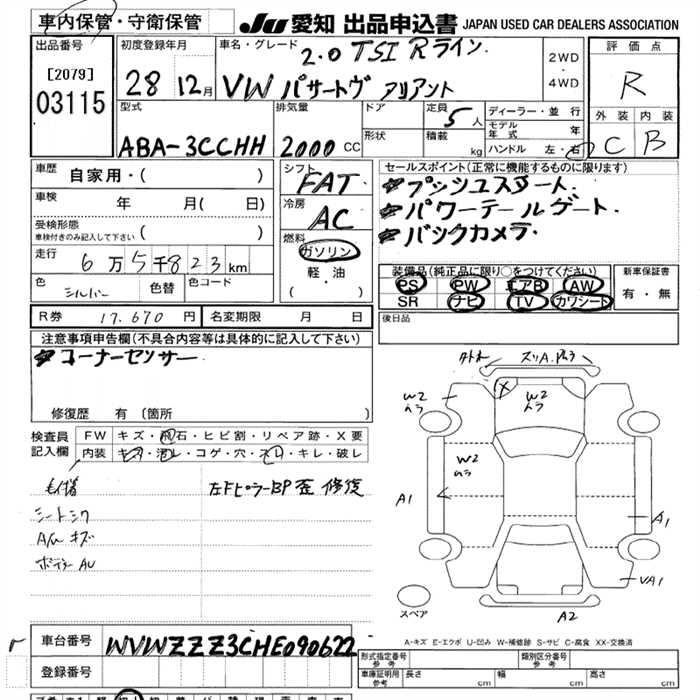 車内保管・守衛保管
JU 愛知 出品申込書 JAPAN USED CAR DEALERS ASSOCIATION
出品番号
[2079]
03115
初度登録年月
28 12月
車名・グレード
2.0 TSI Rライン
VW パサートヴァリアント
2WD
・
4WD
評価点
R
外装 内装
C B
型式
ABA-3CCHH
排気量
2000 CC
ドア
形状
定員 5 人
積載 kg
ディーラー・並行
モデル年式 年
ハンドル 左・右
車歴 自家用・( )
車検 年 月( 日)
受検形態
車検付きのみ記入して下さい ( )
走行 6万5千823km
色 シルバー 色替 色コード
シフト
FAT
冷房
AC
燃料
ガソリン
軽・油
( )
セールスポイント(正常に機能するものに限ります)
プッシュスタート.
パワーテールゲート.
バックカメラ.
装備品(純正品に限り○をつけてください)
PS PW エアB AW
SR ナビ TV カワシート
新車保証書
有・無
後日品
R券 17.670 円 名変期限 月 日
注意事項申告欄(不具合内容等は具体的に記入して下さい)
コーナーセンサー
修復歴 有(箇所 )
検査員記入欄
FW キズ・飛石・ヒビ割・リペア跡・X要
内装 キズ・汚レ・コゲ・穴・スレ・キレ・破レ
シートシワ
A/M キズ
ボデー AU
左Fピラー BP 歪 修復
スリA.
W2
ムラ
W2
ムラ
X
W2
ムラ
A1
A1
VA1
A2
スペア
A-キズ E-エクボ U-凹み W-補修跡 S-サビ C-腐食 XX-交換済
車台番号 WVWZZZ3CHE090622
登録番号
形式指定番号
参考
類別区分番号
参考
車庫証明用
参考
長さ cm 幅 cm 高さ cm